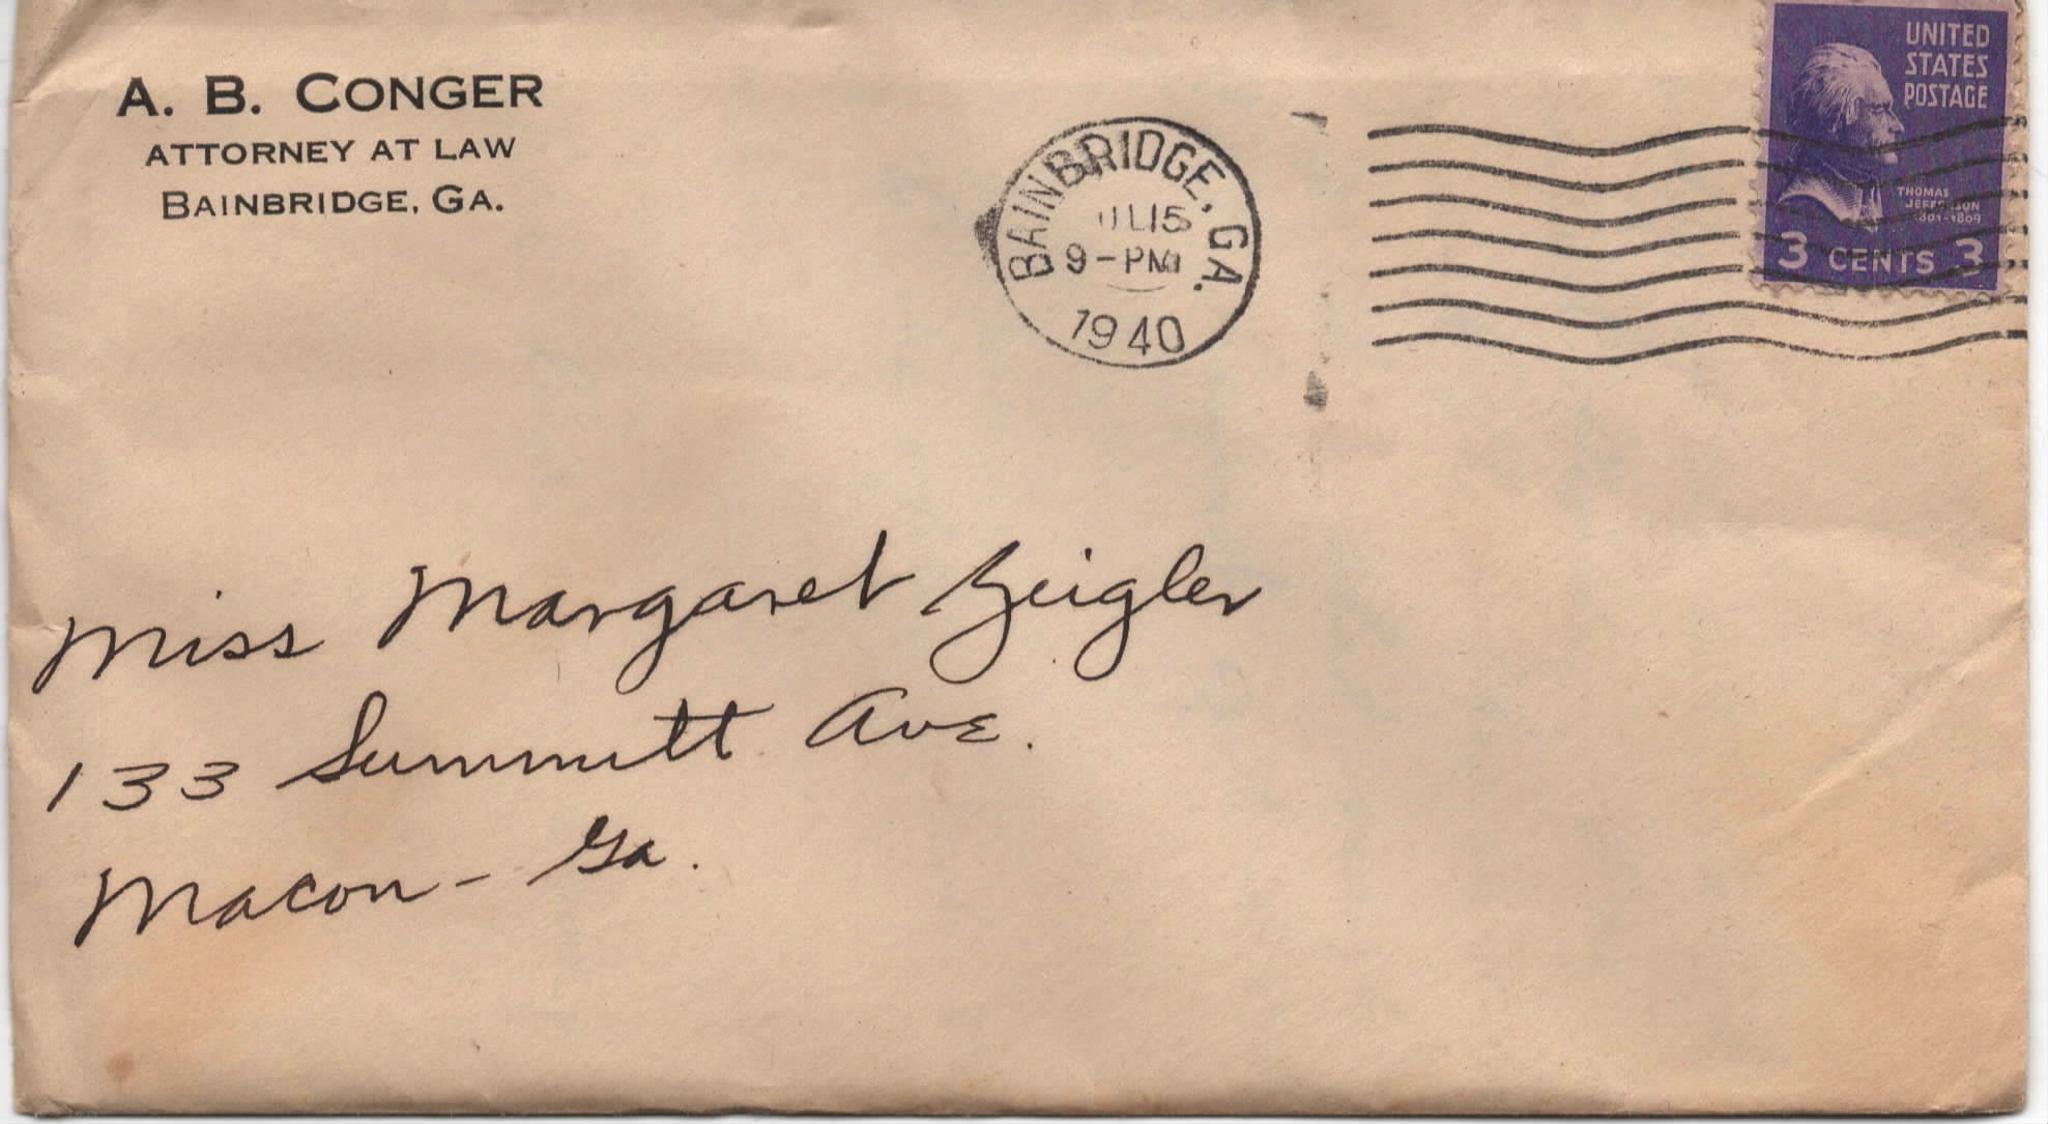 A. B. CONGER
ATTORNEY AT LAW
BAINBRIDGE, GA.
BAINBRIDGE, GA.
JUL 15
9-PM
1940
UNITED
STATES
POSTAGE
THOMAS
JEFFERSON
1801-1809
3 CENTS 3
Miss Margaret Zeigler
133 Summitt Ave.
Macon - Ga.